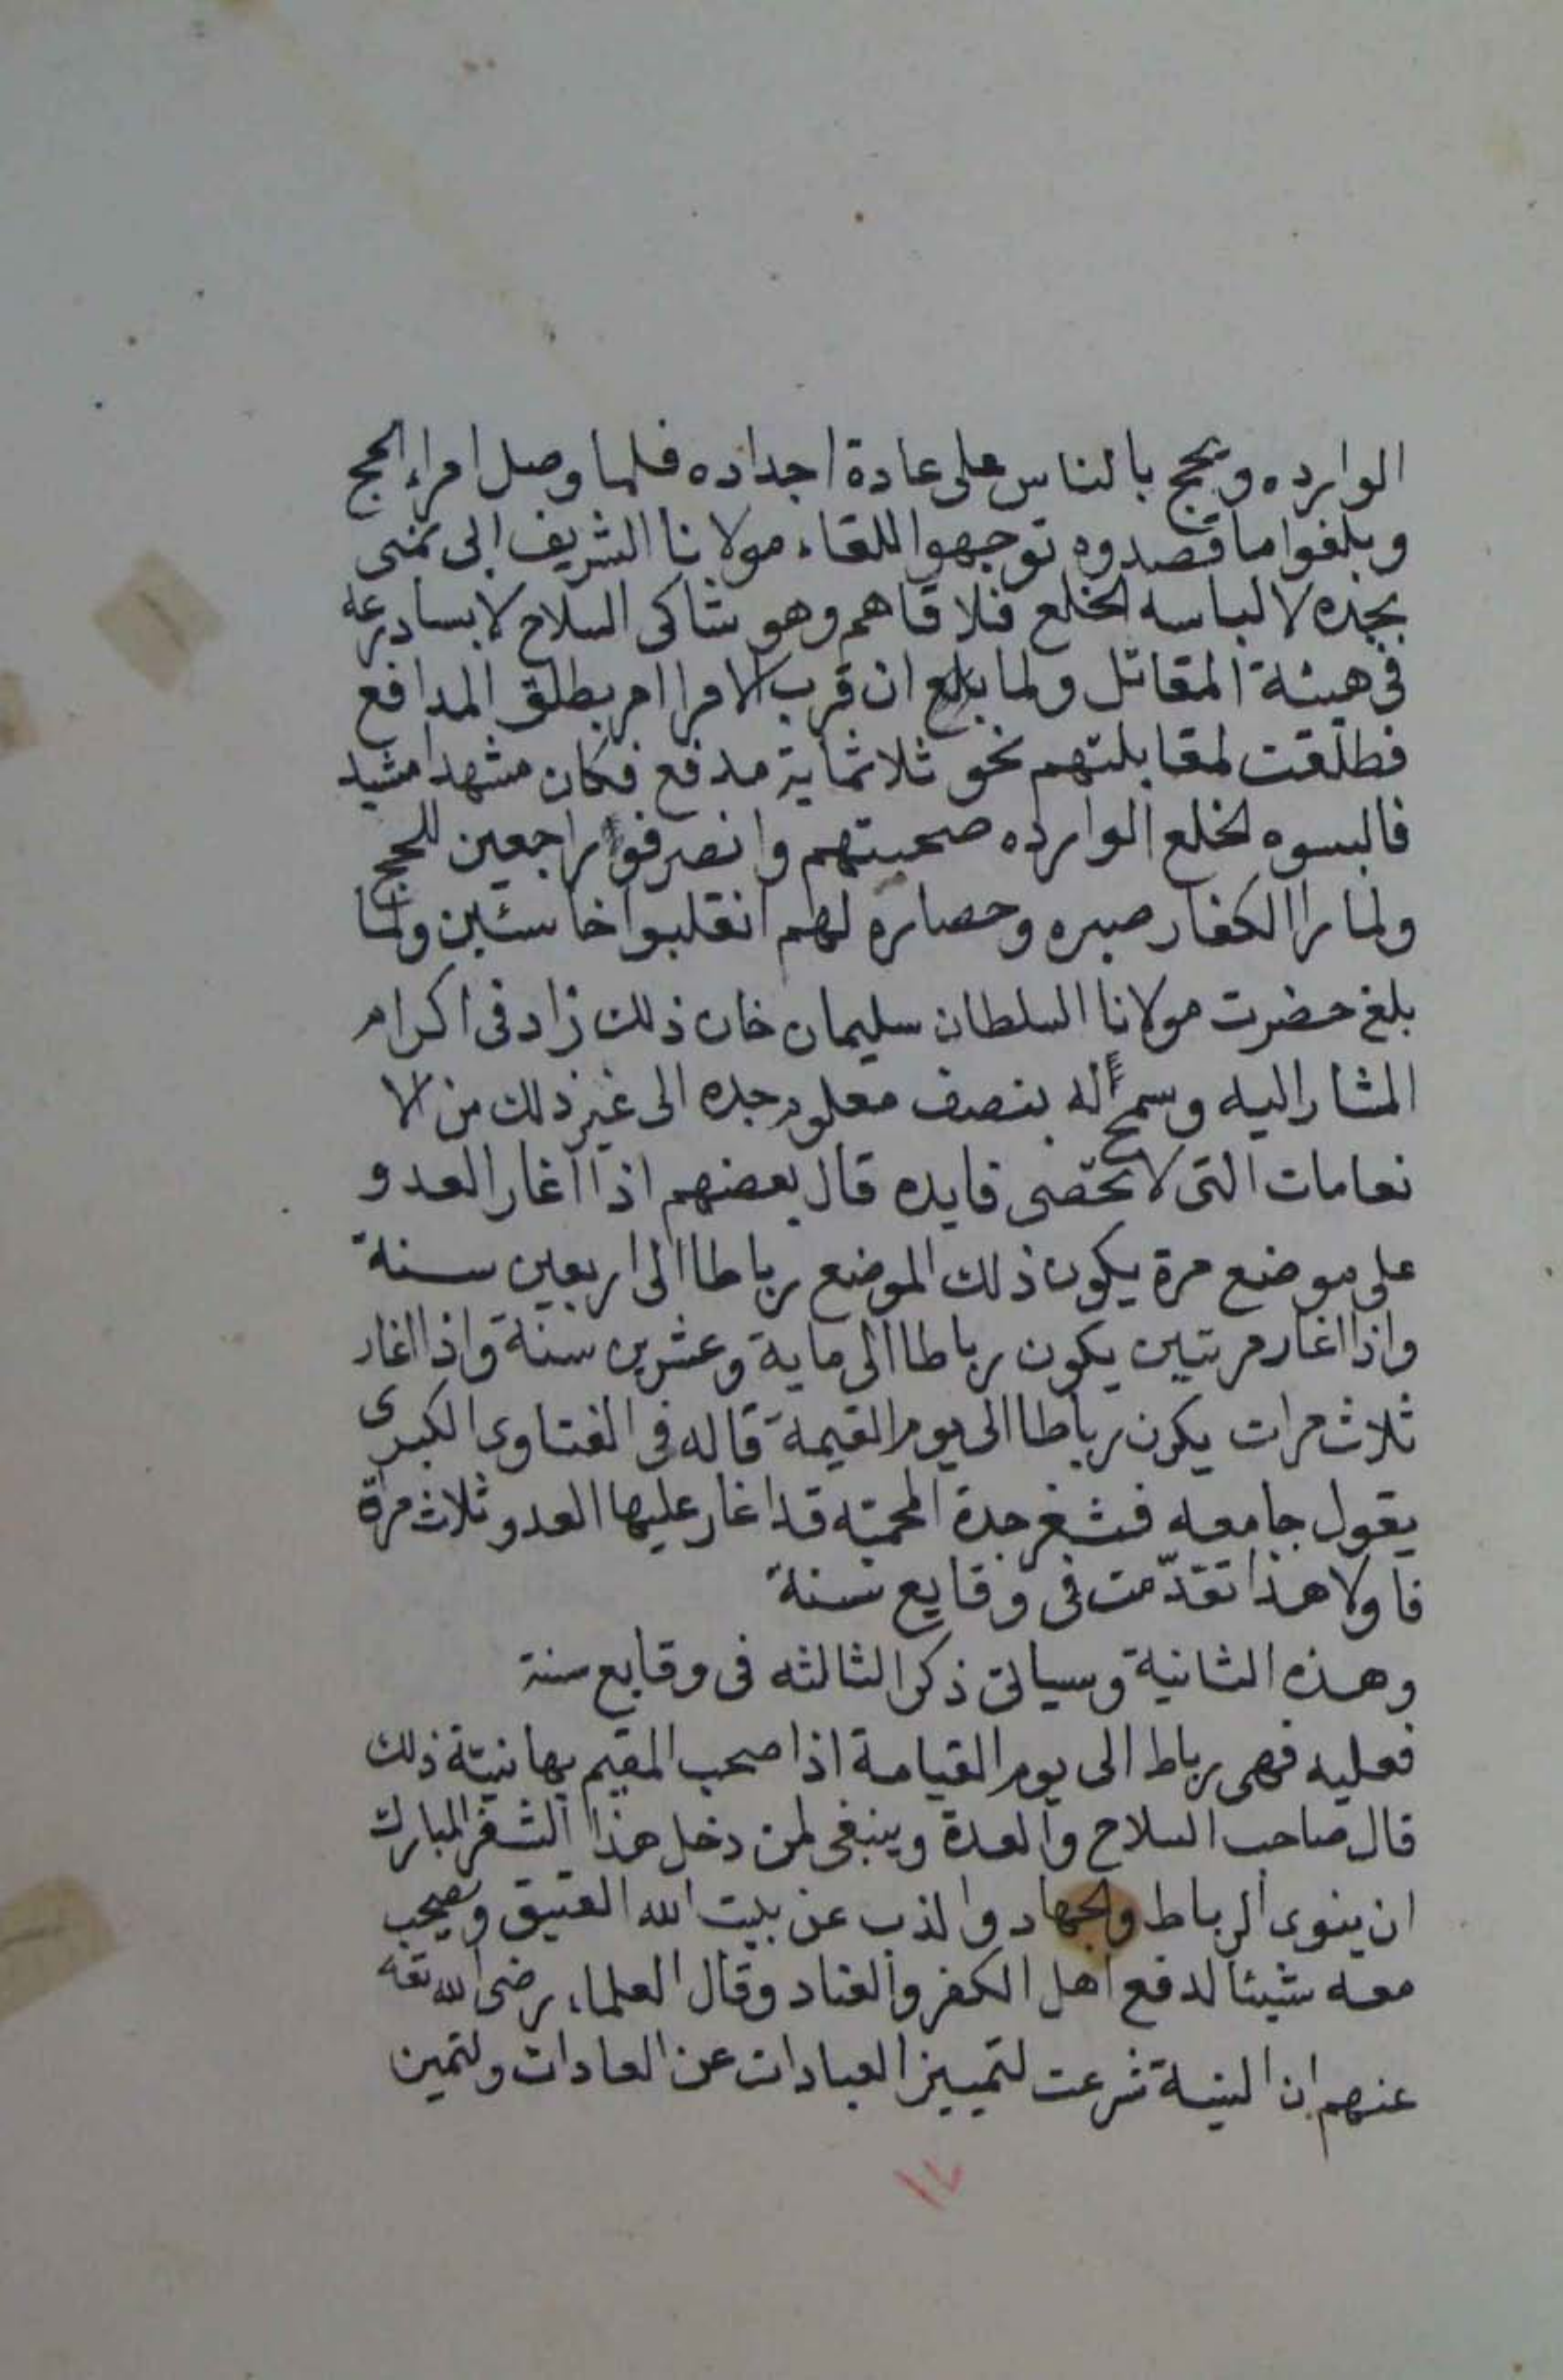 الوارده ويحج بالناس على عادة اجداده فلما وصل امراء الحج
وبلغوا ما قصدوه توجهوا للقاء مولانا الشريف الى
بجده لالباسه الخلع فلاقاهم وهو شاكى السلاح لابسا درعه
فى هيئة المقاتل ولما بلغ ان قرب الامرا امر بطلق المدافع
فطلقت لمقابلتهم نحو ثلاثماية مدفع فكان مشهدا مشيد
فالبسوه الخلع الوارده صحبتهم وانصرفوا راجعين للحج
ولما را الكفار صبره وحصاره لهم انقلبوا خاسئين ولما
بلغ حضرت مولانا السلطان سليمان خان ذلك زاد فى اكرام
المشار اليه وسمح له بنصف معلوم جده الى غير ذلك من الا
نعامات التى لا تحصى فايده قال بعضهم اذا اغار العدو
على موضع مرة يكون ذلك الموضع رباطا الى اربعين سنة
واذا اغار مرتين يكون رباطا الى ماية وعشرين سنة واذا اغار
ثلاث مرات يكون رباطا الى يوم القيمة قاله فى الفتاوى الكبرى
يقول جامعه فثغر جدة المحميّه قد اغار عليها العدو ثلاث مرة
فاولا هذا تقدّمت فى وقايع سنة
وهذه الثانية وسياتى ذكر الثالثه فى وقايع سنة
فعليه فهى رباط الى يوم القيامة اذا صحب المقيم بها نيّة ذلك
قال صاحب السلاح والعدة وينبغى لمن دخل هذا الثغر المبارك
ان ينوى الرباط والجهاد والذب عن بيت الله العتيق ويصحب
معه شيئا لدفع اهل الكفر والعناد وقال العلماء رضى الله تعه
عنهم ان النية شرعت لتمييز العبادات عن العادات ولتمين